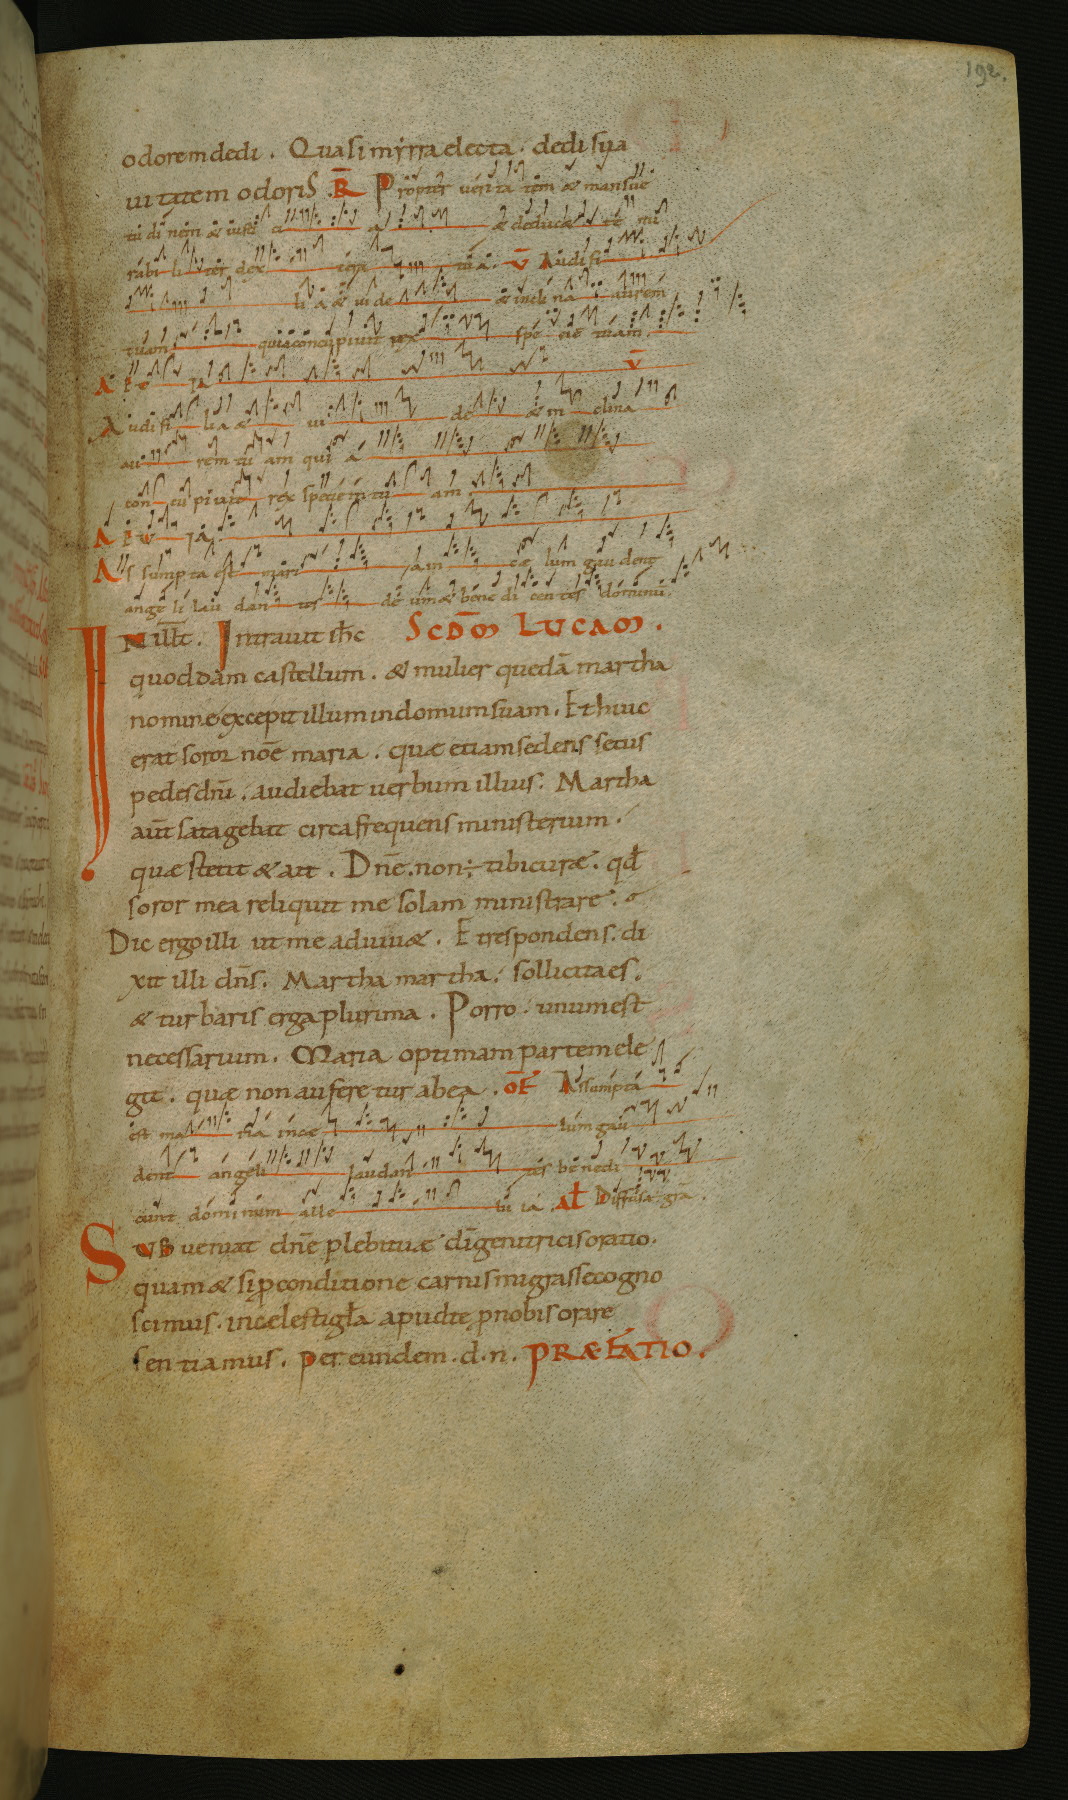 192.
odorem dedi. Quasi myrra electa. dedi sua
uitatem odoris. R̄ Propter ueritatem & mansue
tudinem & iusticia & deducet te mi
rabiliter dextera tua. V̄ Audi fi
lia & uide & inclina aurem
tuam quia concupiuit rex speciē tuam.
A E U IA V̄
Audi filia & uide & inclina
aurem tuam quia
concupiuit rex speciem tuam.
A E U IA.
Assumpta est maria in cælum gaudent
angeli laudantes deum & benedicentes dominū.
IN illt. Intrauit ihc SCDM LUCAM.
quoddam castellum. & mulier quedā martha
nomine excepit illum in domum suam. Et huic
erat soror noē maria. quæ etiam sedens secus
pedes dnī. audiebat uerbum illius. Martha
aut̄ satagebat circa frequens ministerium.
quæ stetit & ait. Dnē. non ÷ tibi curæ. qđ
soror mea reliquit me solam ministrare.
Dic ergo illi ut me adiuu&. Et respondens. di
xit illi dns̄. Martha martha. sollicita es.
& turbaris erga plurima. Porro. unum est
necessarium. Maria optimam partem ele
git. quæ non auferetur ab ea. OF Assumpta
est maria in cæ lum gau
dent angeli laudantes benedi
cunt dominum alleluia. AL Diffusa grā.
SUBueniat dnē plebi tuæ dī genitricis oratio.
quam & si p conditione carnis migrasse cogno
scimus. in celesti gła apud te p nobis orare
sentiamus. per eundem. d. n. PRÆFATIO.